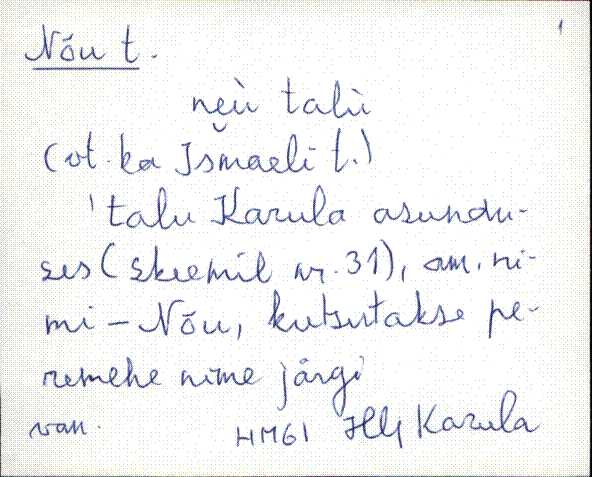 1
Nõu t.
nẹu̬ù talù
(vt. ka Ismaeli t.)
'talu Karula asundu-
ses (skeemil nr. 31), am. ni-
mi – Nõu, kutsutakse pe-
remehe nime järgi
van. HM61 Karula